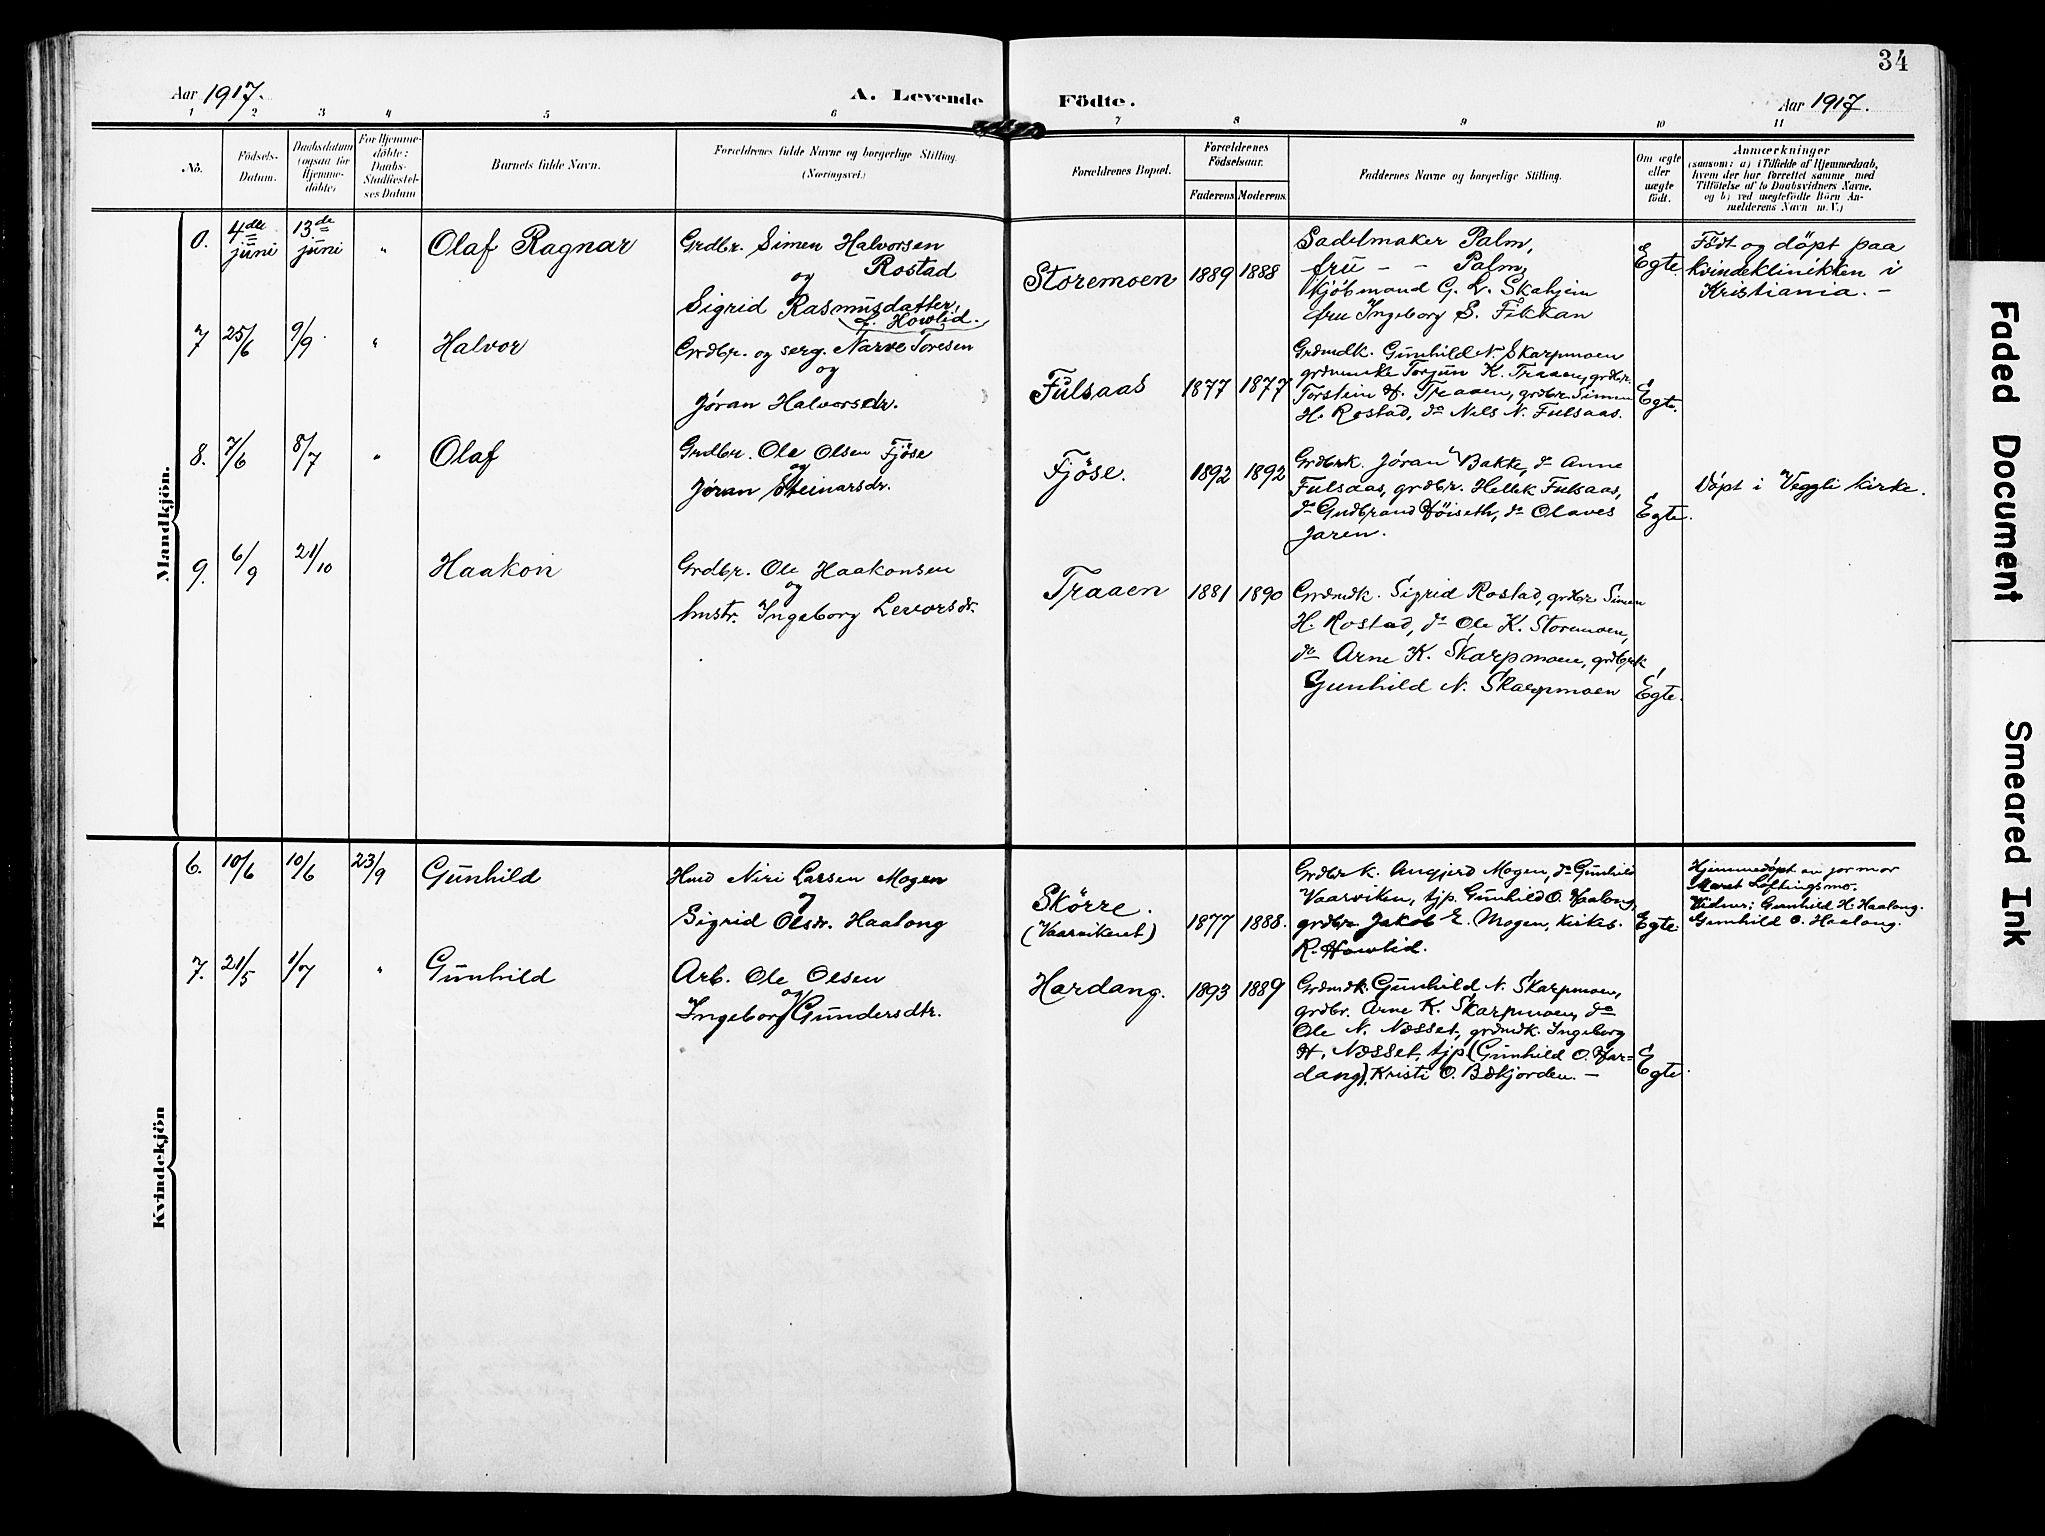 34
Aar 1917.
A. Levende Födte.
Aar 1917.
1 2 3 4 5 6 7 8 9 10 11
No.
Födsels-
Datum.
Daabsdatum
(ogsaa for
Hjemme-
döbte)
For Hjemme-
döbte:
Daabs-
Stadfæstel-
ses Datum
Barnets fulde Navn.
Forældrenes fulde Navne og borgerlige Stilling.
(Næringsvei.)
Forældrenes Bopæl.
Forældrenes
Födselsaar.
Faderens
Moderens.
Faddernes Navne og borgerlige Stilling.
Om ægte
eller
uægte
født.
Anmærkninger
(saasom: a) i Tilfælde af Hjemmedaab,
hvem der har forrettet samme med
Tilföielse af to Daabsvidners Navne.
og b) ved uægtefödte Börn An-
melderens Navn m. V.)
Mandkjön.
0.
4de
juni
13de
juni
"
Olaf Ragnar
Grdbr. Simen Halvorsen
Rostad
og
Sigrid Rasmusdatter,
f. Howlid.
Storemoen
1889
1888
Sadelmaker Palm,
fru - - Palm,
Kjöbmand G. L. Skahjem
fru Ingeborg S. Fikkan
Egte
Født og døpt paa
kvindeklinikken i
Kristiania. -
7
25/6
9/9
"
Halvor
Grdbr. og serg. Narve Toresen
og
Jøran Halvorsdr.
Fulsaas
1877
1877
Grdmdk. Gunhild N. Skarpmoen
grdmenke Torjun K. Traaen, grdbr.
Torstein H. Traaen, grdbr. Simen
H. Rostad, do Nils N. Fulsaas.
Egte.
8.
7/6
8/7
"
Olaf
Grdbr. Ole Olsen Fjöse
og
Jøran Steinarsdr.
Fjöse.
1892
1892
Grdbrk. Jøran Bakke, do Anne
Fulsaas, grdbr. Hellek Fulsaas,
do Gudbrand Höiseth, do Olaves
Jaren.
Egte.
Døpt i Veggli kirke.
9.
6/9
21/10
Haakon
Grdbr. Ole Haakonsen
og
hustr. Ingeborg Levorsdr.
Traaen
1881
1890
Grdmdk. Sigrid Rostad, grdbr Simen
H. Rostad, do Ole K. Storemoen,
do Arne K. Skarpmoen, grdbrk
Gunhild N. Skarpmoen
Egte.
Kvindekjön
6.
10/6
10/6
23/9
Gunhild
Hmd Niri Larsen Mogen
og
Sigrid Olsdr. Haalong
Skörre.
(Vaarvikeret)
1877
1888.
Grdbrk. Angjerd Mogen, do Gunhild
Vaarviken, tjp. Gunhild O. Haalong,
grdbr. Jakob E. Mogen, kirkes.
R. Howlid.
Egte.
Hjemmedøpt av jormor
Maret Løftingsmo.
Vidner: Gunhild H. Haalong.
Gunhild O. Haalong.
7.
21/5
1/7
"
Gunhild
Arb. Ole Olsen
og
Ingeborg Gundersdtr.
Hardang.
1893
1889
Grdmdk. Gunhild N. Skarpmoen,
grdbr. Arne K. Skarpmoen, do
Ole N. Næsset, grdmdk. Ingeborg
H. Næsset, tjp. (Gunhild O. Har=
dang), Kristi O. Bækjorden. -
Egte.
Faded Document
Smeared Ink